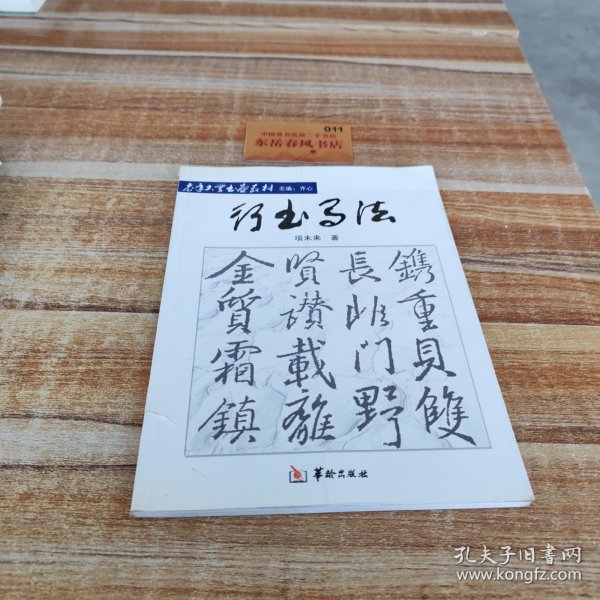 011
中国著名优秀二手书店
东岳春风书店
老年大学书画教材 主编：齐心
行书写法
项未来 著
鐫重貝雙
長臨門野
賢讃載離
金質霜鎮
华龄出版社
孔夫子旧书网
www.kongfz.com